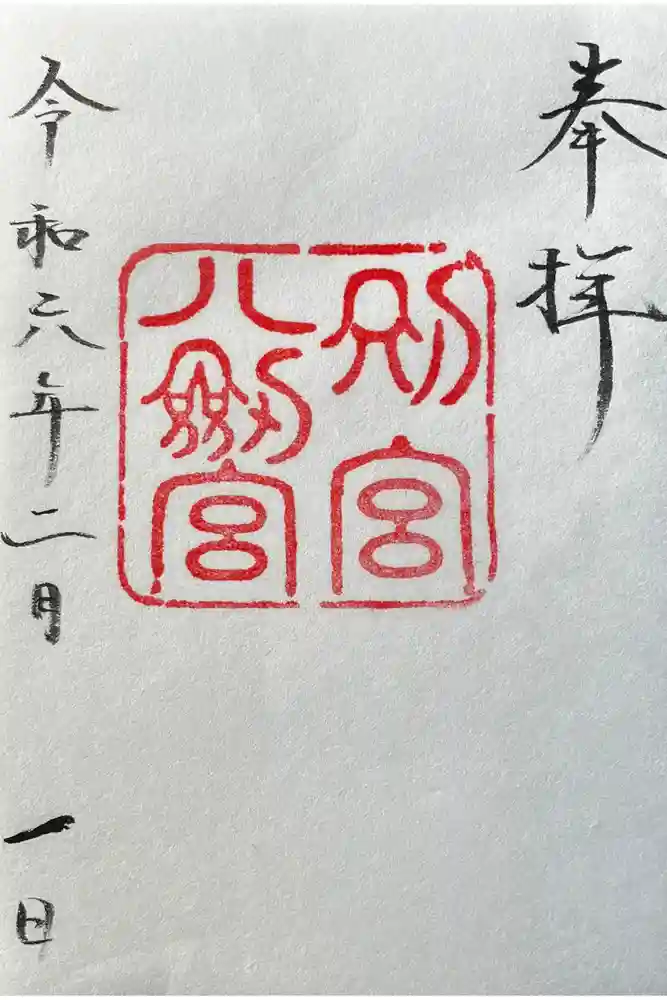 奉拝
別宮
八劔宮
令和六年二月一日